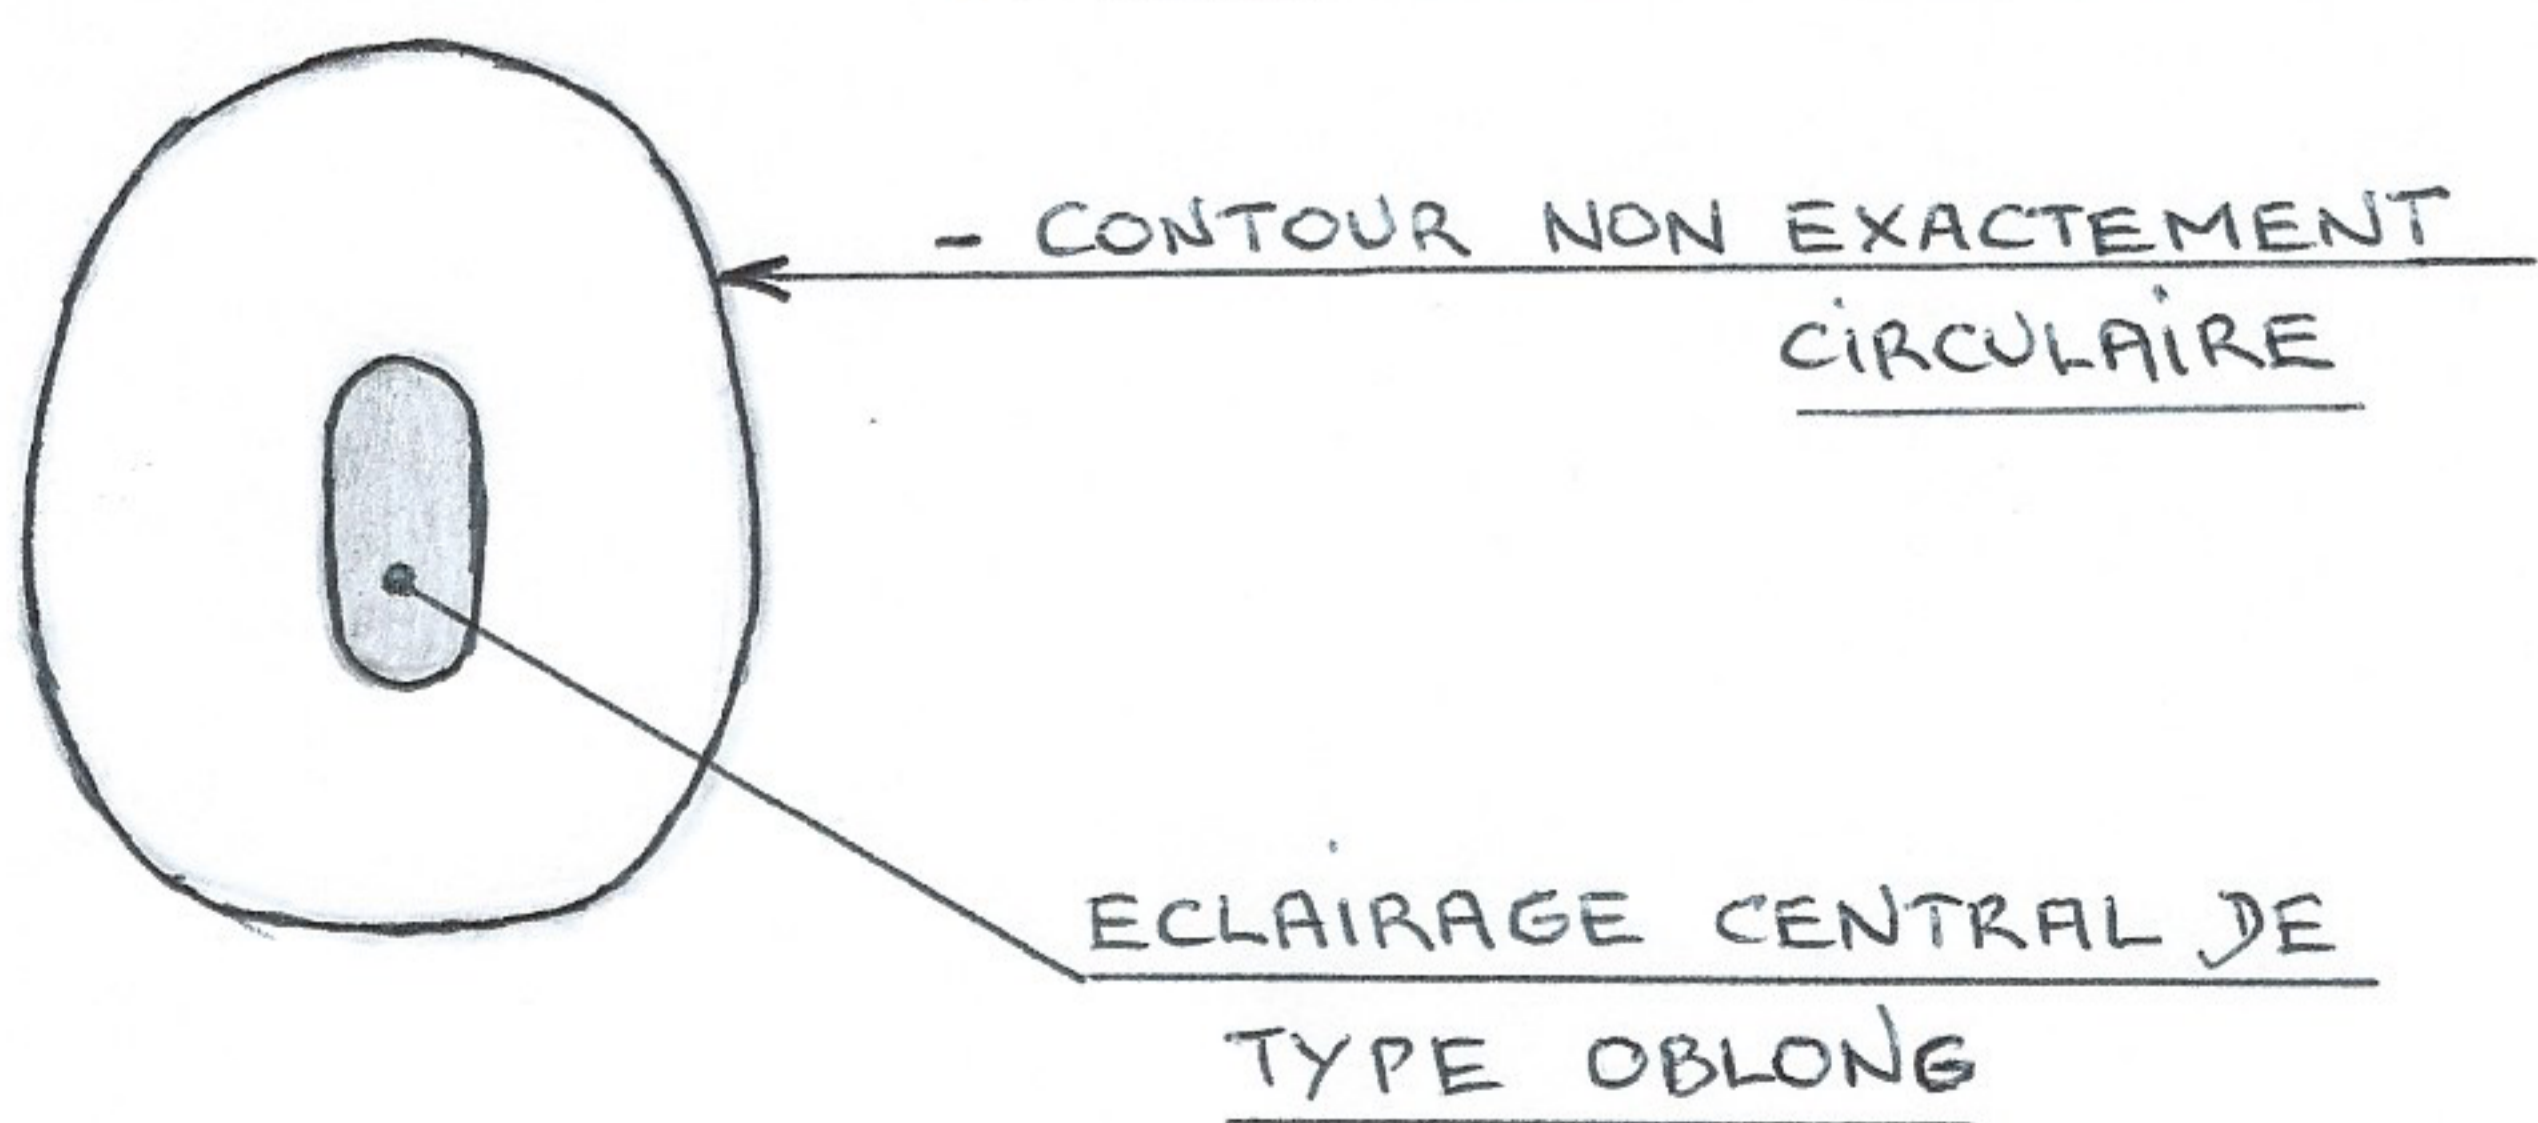 - CONTOUR NON EXACTEMENT
CIRCULAIRE
ECLAIRAGE CENTRAL DE
TYPE OBLONG